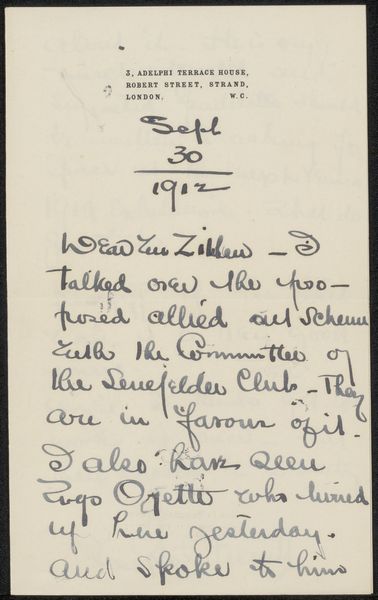 3, ADELPHI TERRACE HOUSE,
ROBERT STREET, STRAND,
LONDON. W.C.
Sept
30
1912
Dear Mr Zilcken – I
talked over the pro–
posed allied art scheme
with the Committee of
the Senefelder Club – They
are in favour of it.
I also have seen
Ugo Ojetti who turned
up here yesterday.
and spoke to him